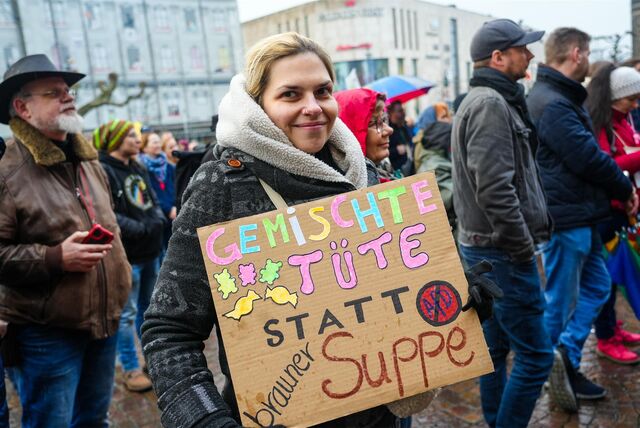 GEMISCHTE
TÜTE
STATT
AfD
brauner
Suppe